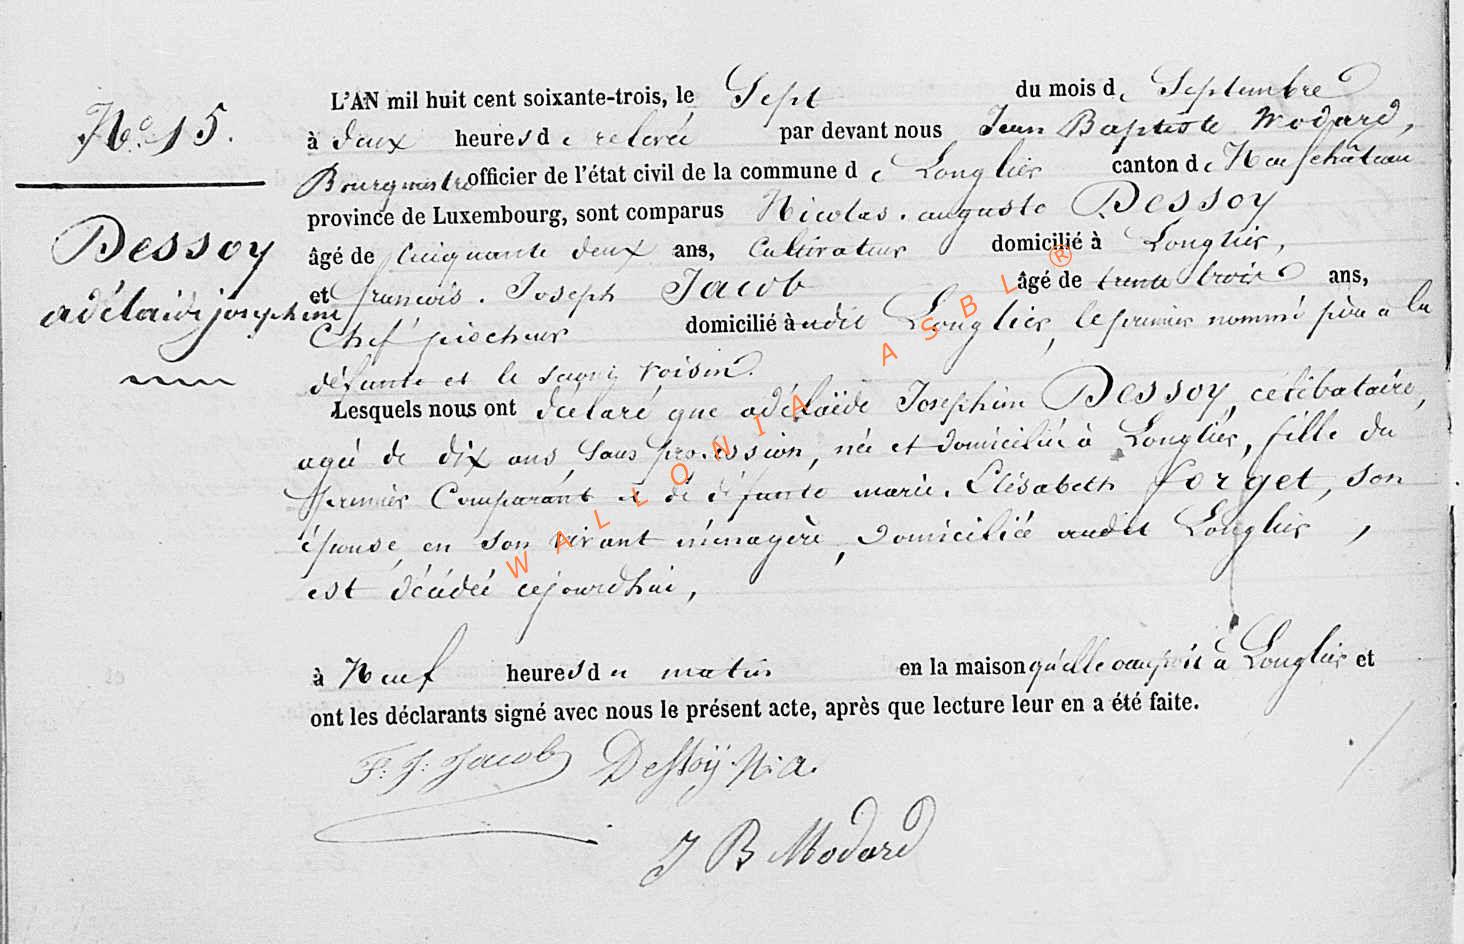 N° 15.
Dessoy
adélaide josephine
L'AN mil huit cent soixante-trois, le Sept du mois de Septembre
à deux heures de relevée par devant nous Jean Baptiste Modard,
Bourgmestre officier de l'état civil de la commune de Longlier canton de Neufchâteau
province de Luxembourg, sont comparus Nicolas auguste Dessoy
âgé de Cinquante deux ans, Cultivateur domicilié à Longlier,
et francois Joseph Jacob âgé de trente trois ans,
Chef piocheur domicilié audit Longlier, le premier nommé père a la
défunte et le second voisin.
Lesquels nous ont déclaré que adélaïde Josephine Dessoy, célibataire,
agée de dix ans, Sans profession, née et domiciliée à Longlier, fille du
premier Comparant et de défunte marie Elisabeth forget, son
épouse, en son vivant ménagère, domiciliée audit Longlier,
est décédée cejourdhui,
à Neuf heures du matin en la maison qu'elle occupoit à Longlier et
ont les déclarants signé avec nous le présent acte, après que lecture leur en a été faite.
F. J. Jacob Dessoÿ. N. a.
J B Modard
WALLONIA ASBL ®